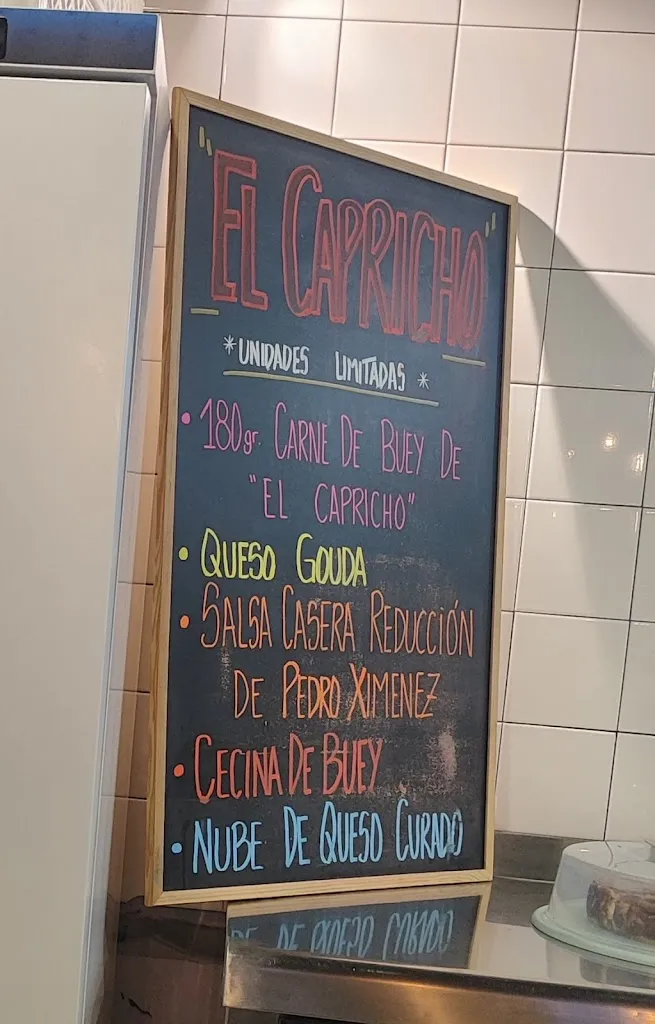 "EL CAPRICHO"
*UNIDADES LIMITADAS*
• 180gr. CARNE DE BUEY DE
"EL CAPRICHO"
• QUESO GOUDA
• SALSA CASERA REDUCCIÓN
DE PEDRO XIMENEZ
• CECINA DE BUEY
• NUBE DE QUESO CURADO